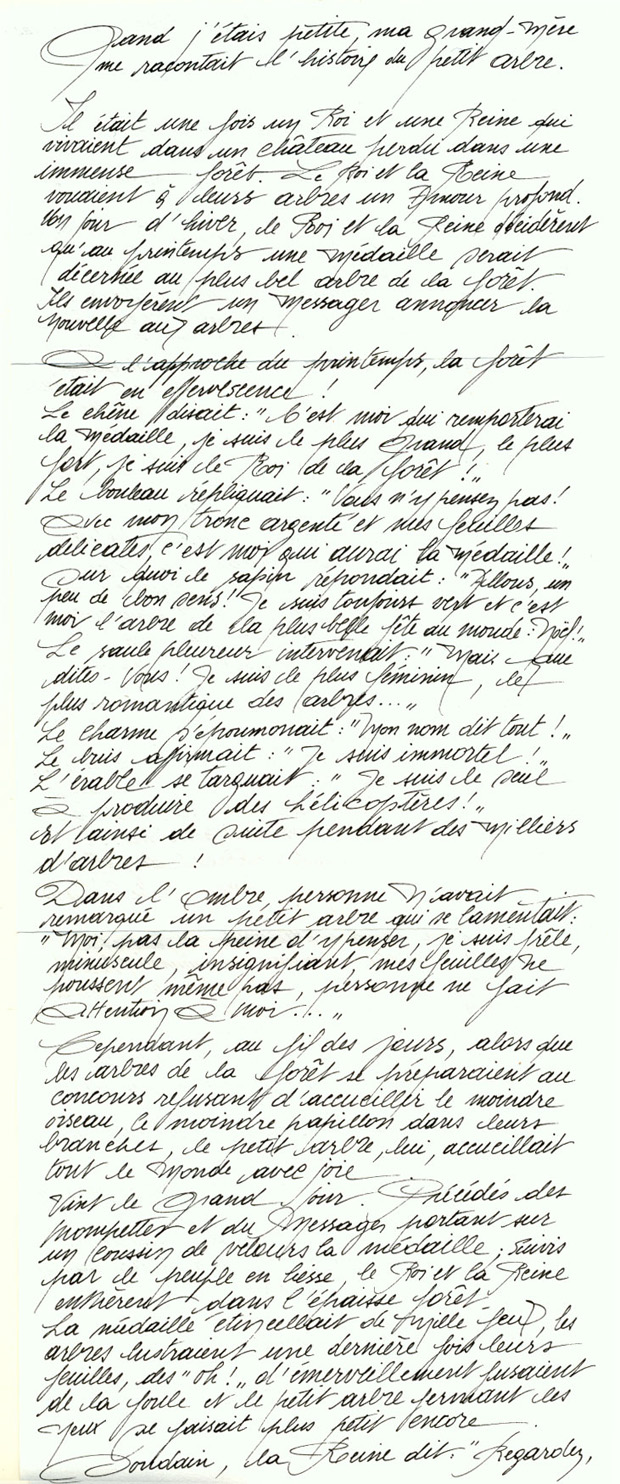 Quand j'étais petite, ma grand-mère
me racontait l'histoire du petit arbre.
Il était une fois un Roi et une Reine qui
vivaient dans un château perdu dans une
immense forêt. Le Roi et la Reine
vouaient à leurs arbres un Amour profond.
Un jour d'hiver, le Roi et la Reine décidèrent
qu'au printemps une médaille serait
décernée au plus bel arbre de la forêt.
Ils envoyèrent un Messager annoncer la
nouvelle aux arbres.
A l'approche du printemps, la forêt
était en effervescence !
Le chêne disait : "C'est moi qui remporterai
la médaille, je suis le plus Grand, le plus
fort, je suis le Roi de la forêt !"
Le bouleau répliquait : "Vous n'y pensez pas !
Avec mon tronc argenté et mes feuilles
délicates, c'est moi qui aurai la médaille !"
Sur quoi le sapin répondait : "Allons, un
peu de bon sens !! Je suis toujours vert et c'est
moi l'arbre de la plus belle fête au monde : Noël !"
Le saule pleureur intervenait : "Mais que
dites-vous ! Je suis le plus féminin, le
plus romantique des arbres..."
Le charme s'époumonait : "Mon nom dit tout !"
Le buis affirmait : "Je suis immortel !"
L'érable se targuait : "Je suis le seul
à produire des hélicoptères !"
Et ainsi de suite pendant des milliers
d'arbres !
Dans l'Ombre, personne n'avait
remarqué un petit arbre qui se lamentait :
"Moi, pas la peine d'y penser, je suis frêle,
minuscule, insignifiant, mes feuilles ne
poussent même pas, personne ne fait
Attention à moi..."
Cependant, au fil des jours, alors que
les arbres de la forêt se préparaient au
concours refusant d'accueillir le moindre
oiseau, le moindre papillon dans leurs
branches, le petit arbre, lui, accueillait
tout le Monde avec joie.
Vint le Grand Jour. Précédés des
trompettes et du Messager portant sur
un coussin de velours la médaille ; suivis
par le peuple en liesse, le Roi et la Reine
entrèrent dans l'épaisse forêt.
La médaille étincellait de mille feux, les
arbres lustraient une dernière fois leurs
feuilles, des "oh !" d'émerveillement fusaient
de la foule et le petit arbre fermant les
yeux se faisait plus petit encore.
Soudain, la Reine dit : "Regardez,